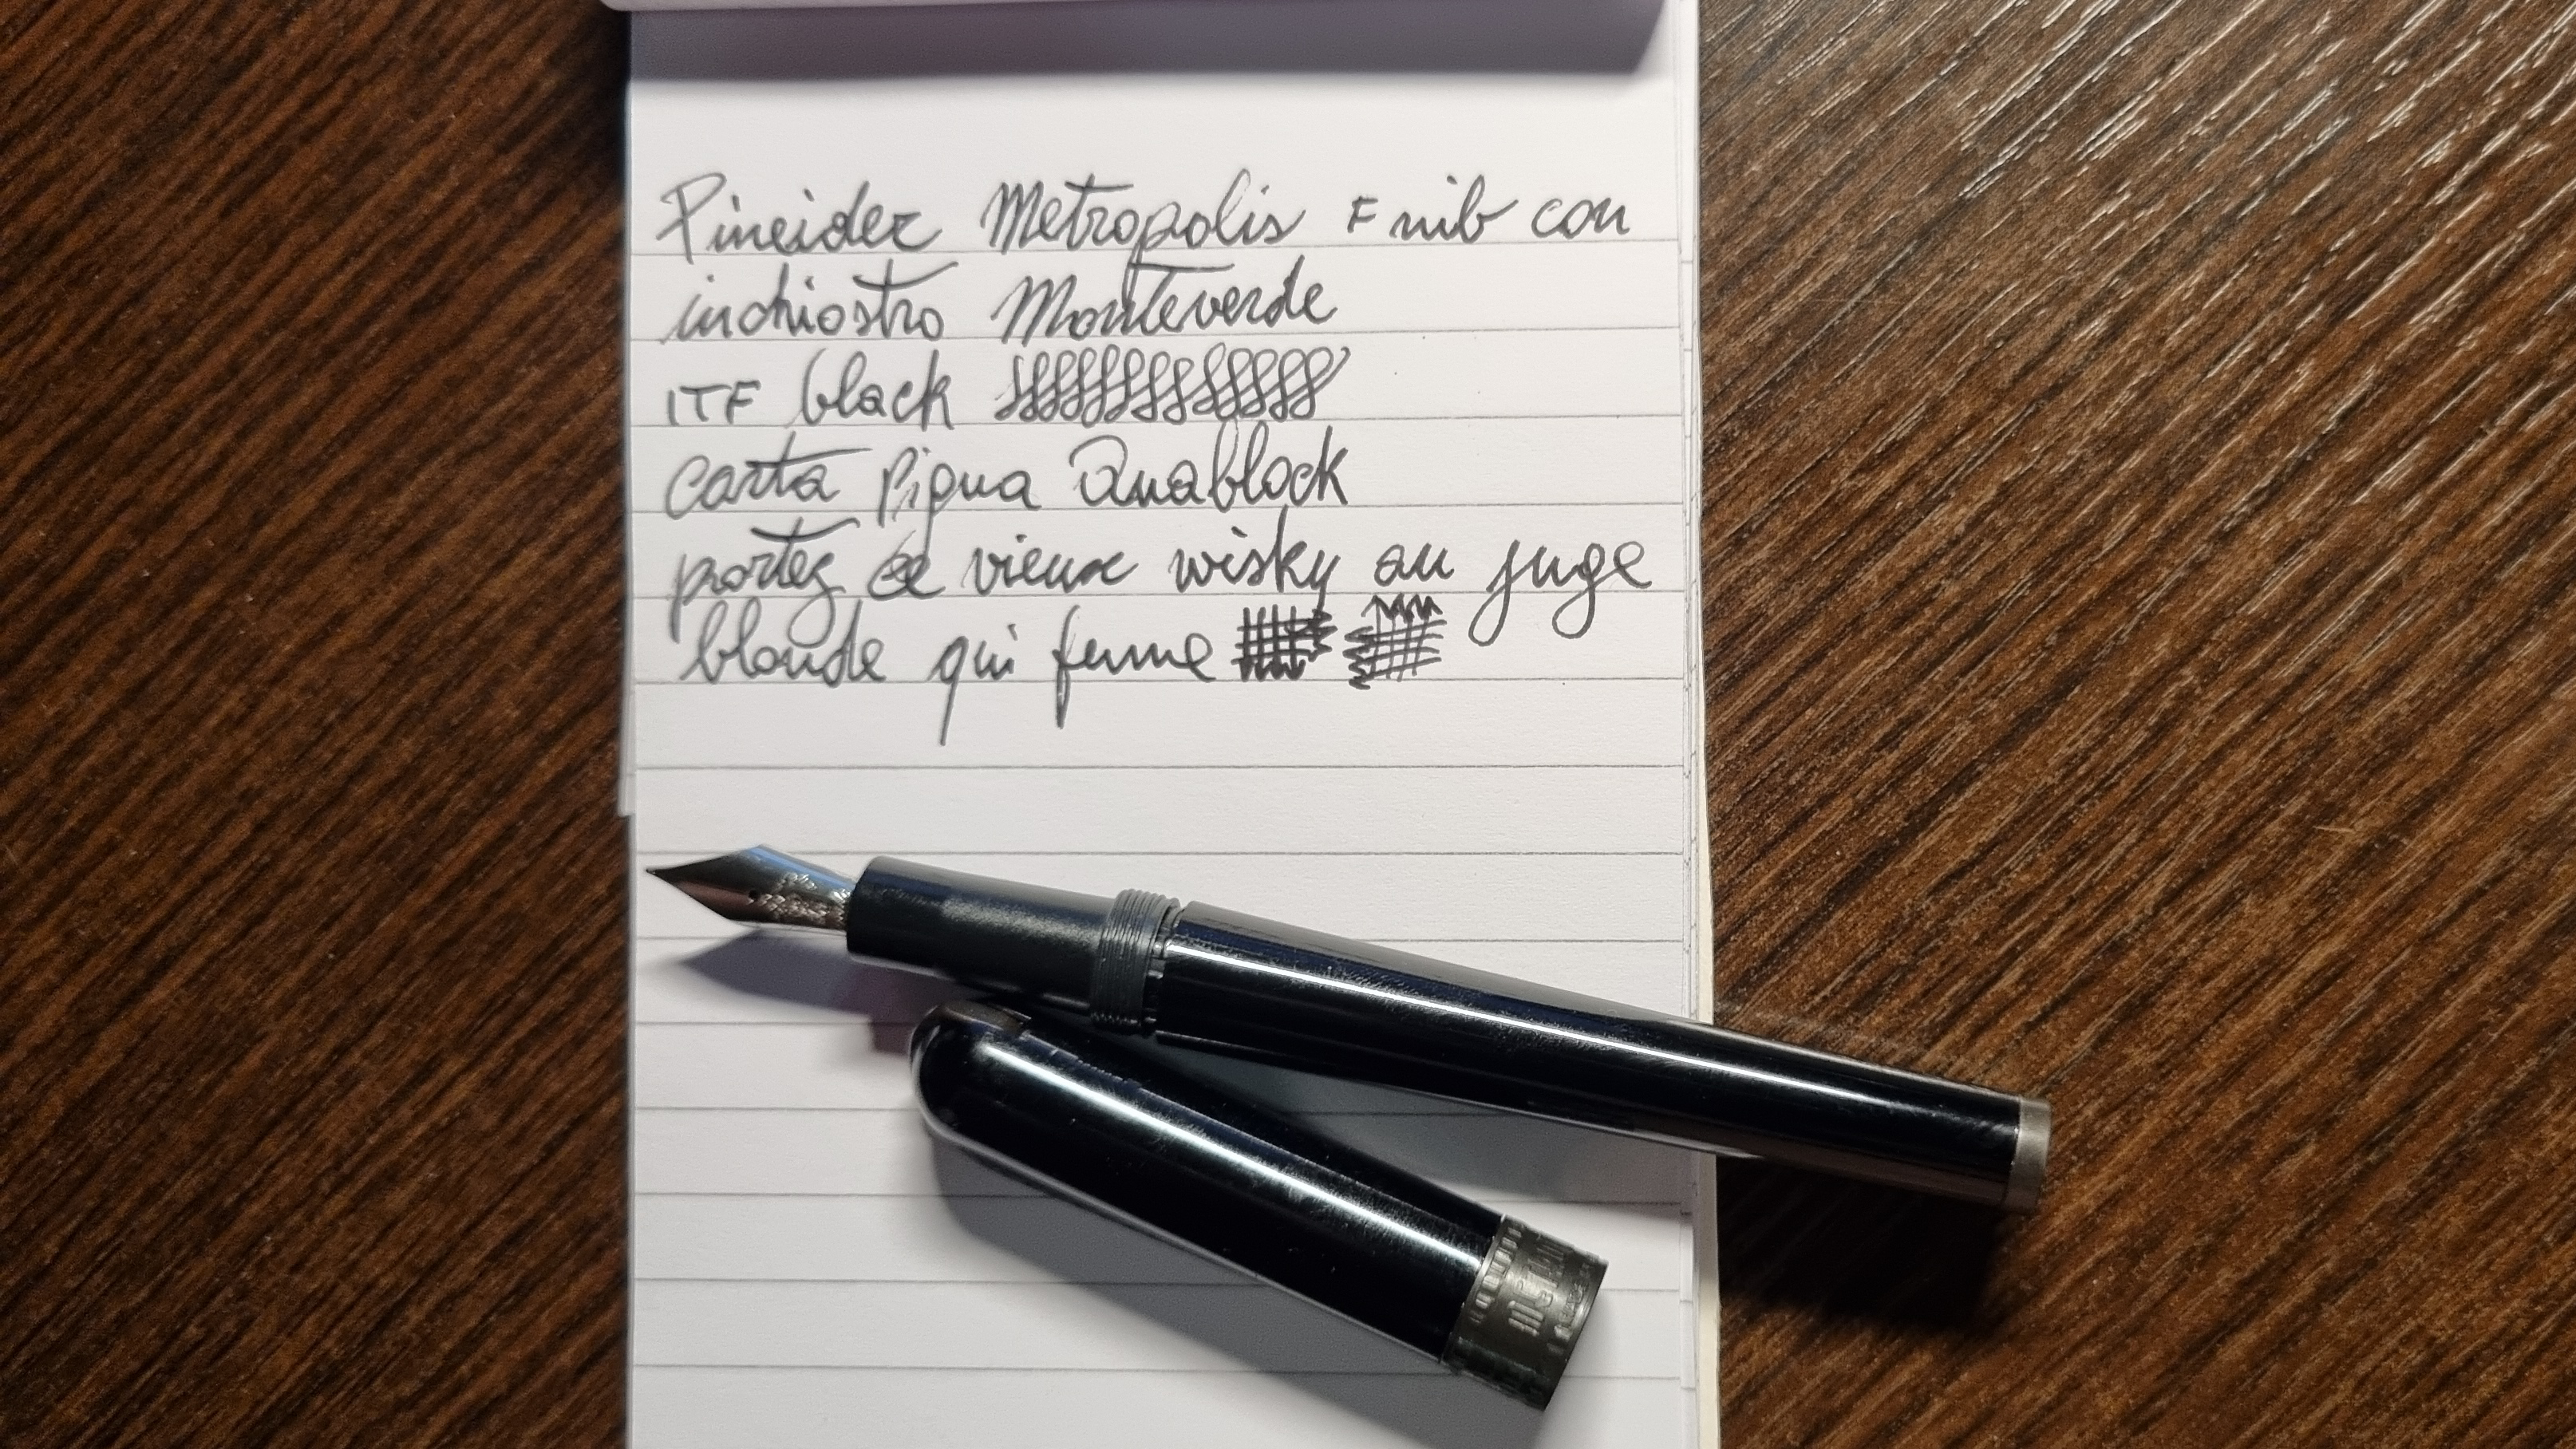 Pineider Metropolis F nib con
inchiostro Monteverde
ITF black
carta Pigna Quablock
portez ce vieux wisky au juge
blonde qui fume